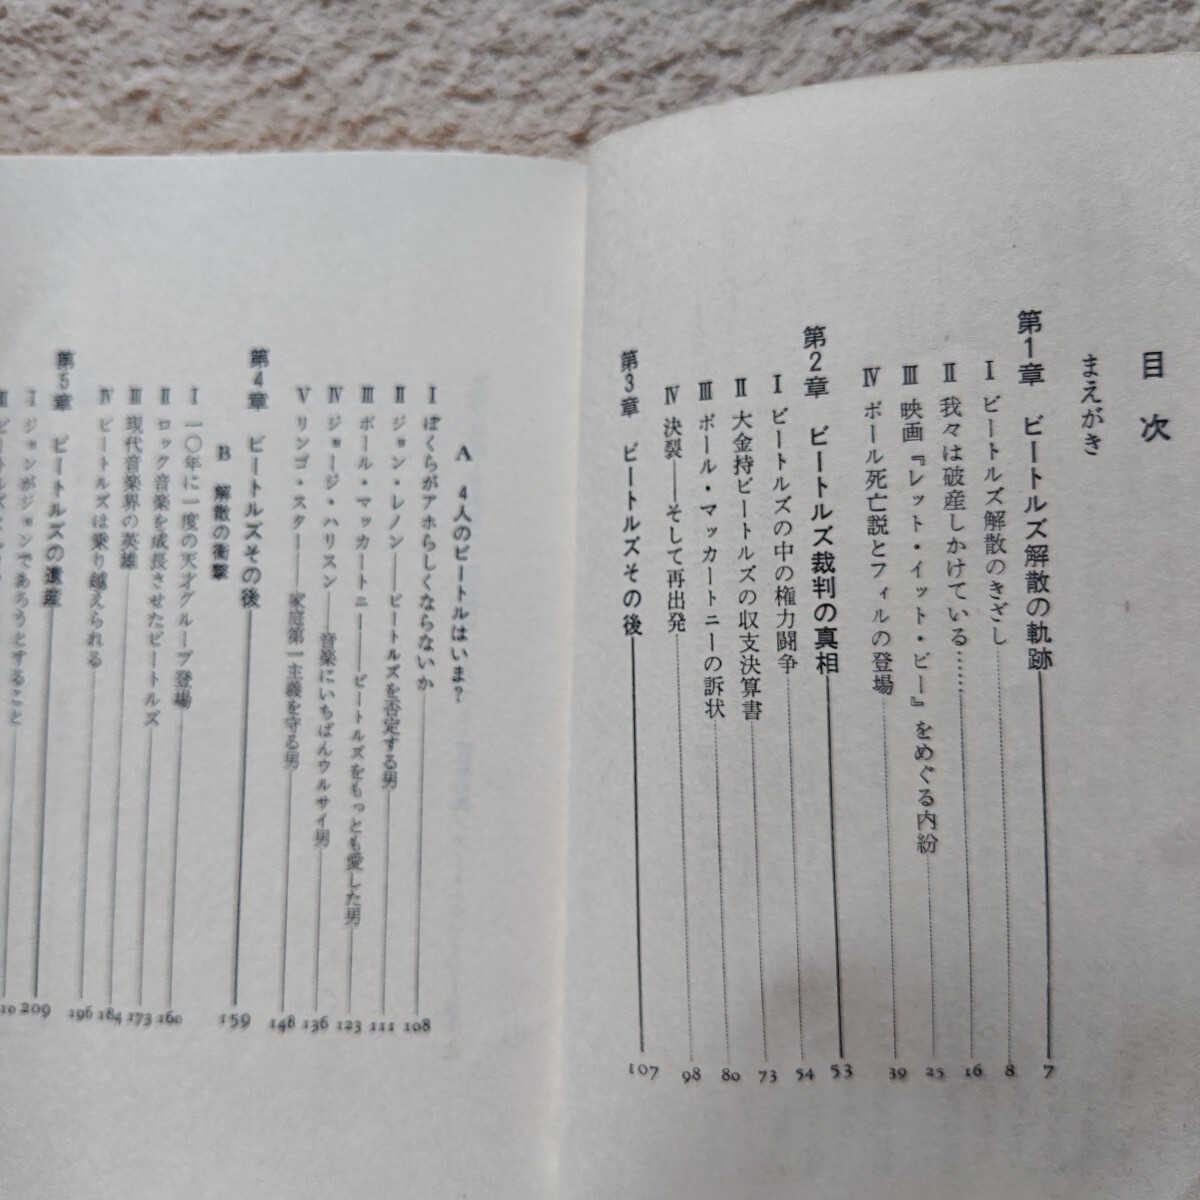 目次
まえがき
第1章 ビートルズ解散の軌跡 7
Ⅰ ビートルズ解散のきざし 8
Ⅱ 我々は破産しかけている…… 16
Ⅲ 映画『レット・イット・ビー』をめぐる内紛 25
Ⅳ ポール死亡説とフィルの登場 39
第2章 ビートルズ裁判の真相 53
Ⅰ ビートルズの中の権力闘争 54
Ⅱ 大金持ビートルズの収支決算書 73
Ⅲ ポール・マッカートニーの訴状 80
Ⅳ 決裂——そして再出発 98
第3章 ビートルズその後 107
A 4人のビートルはいま?
Ⅰ ぼくらがアホらしくならないか 108
Ⅱ ジョン・レノン——ビートルズを否定する男 111
Ⅲ ポール・マッカートニー——ビートルズをもっとも愛した男 123
Ⅳ ジョージ・ハリスン——音楽にいちばんウルサイ男 136
Ⅴ リンゴ・スター——家庭第一主義を守る男 148
第4章 ビートルズその後 159
B 解散の衝撃
Ⅰ 一〇年に一度の天才グループ登場 160
Ⅱ ロック音楽を成長させたビートルズ 173
Ⅲ 現代音楽界の英雄 184
Ⅳ ビートルズは乗り越えられる 196
第5章 ビートルズの遺産 209
Ⅰ ジョンがジョンであろうとすること 210